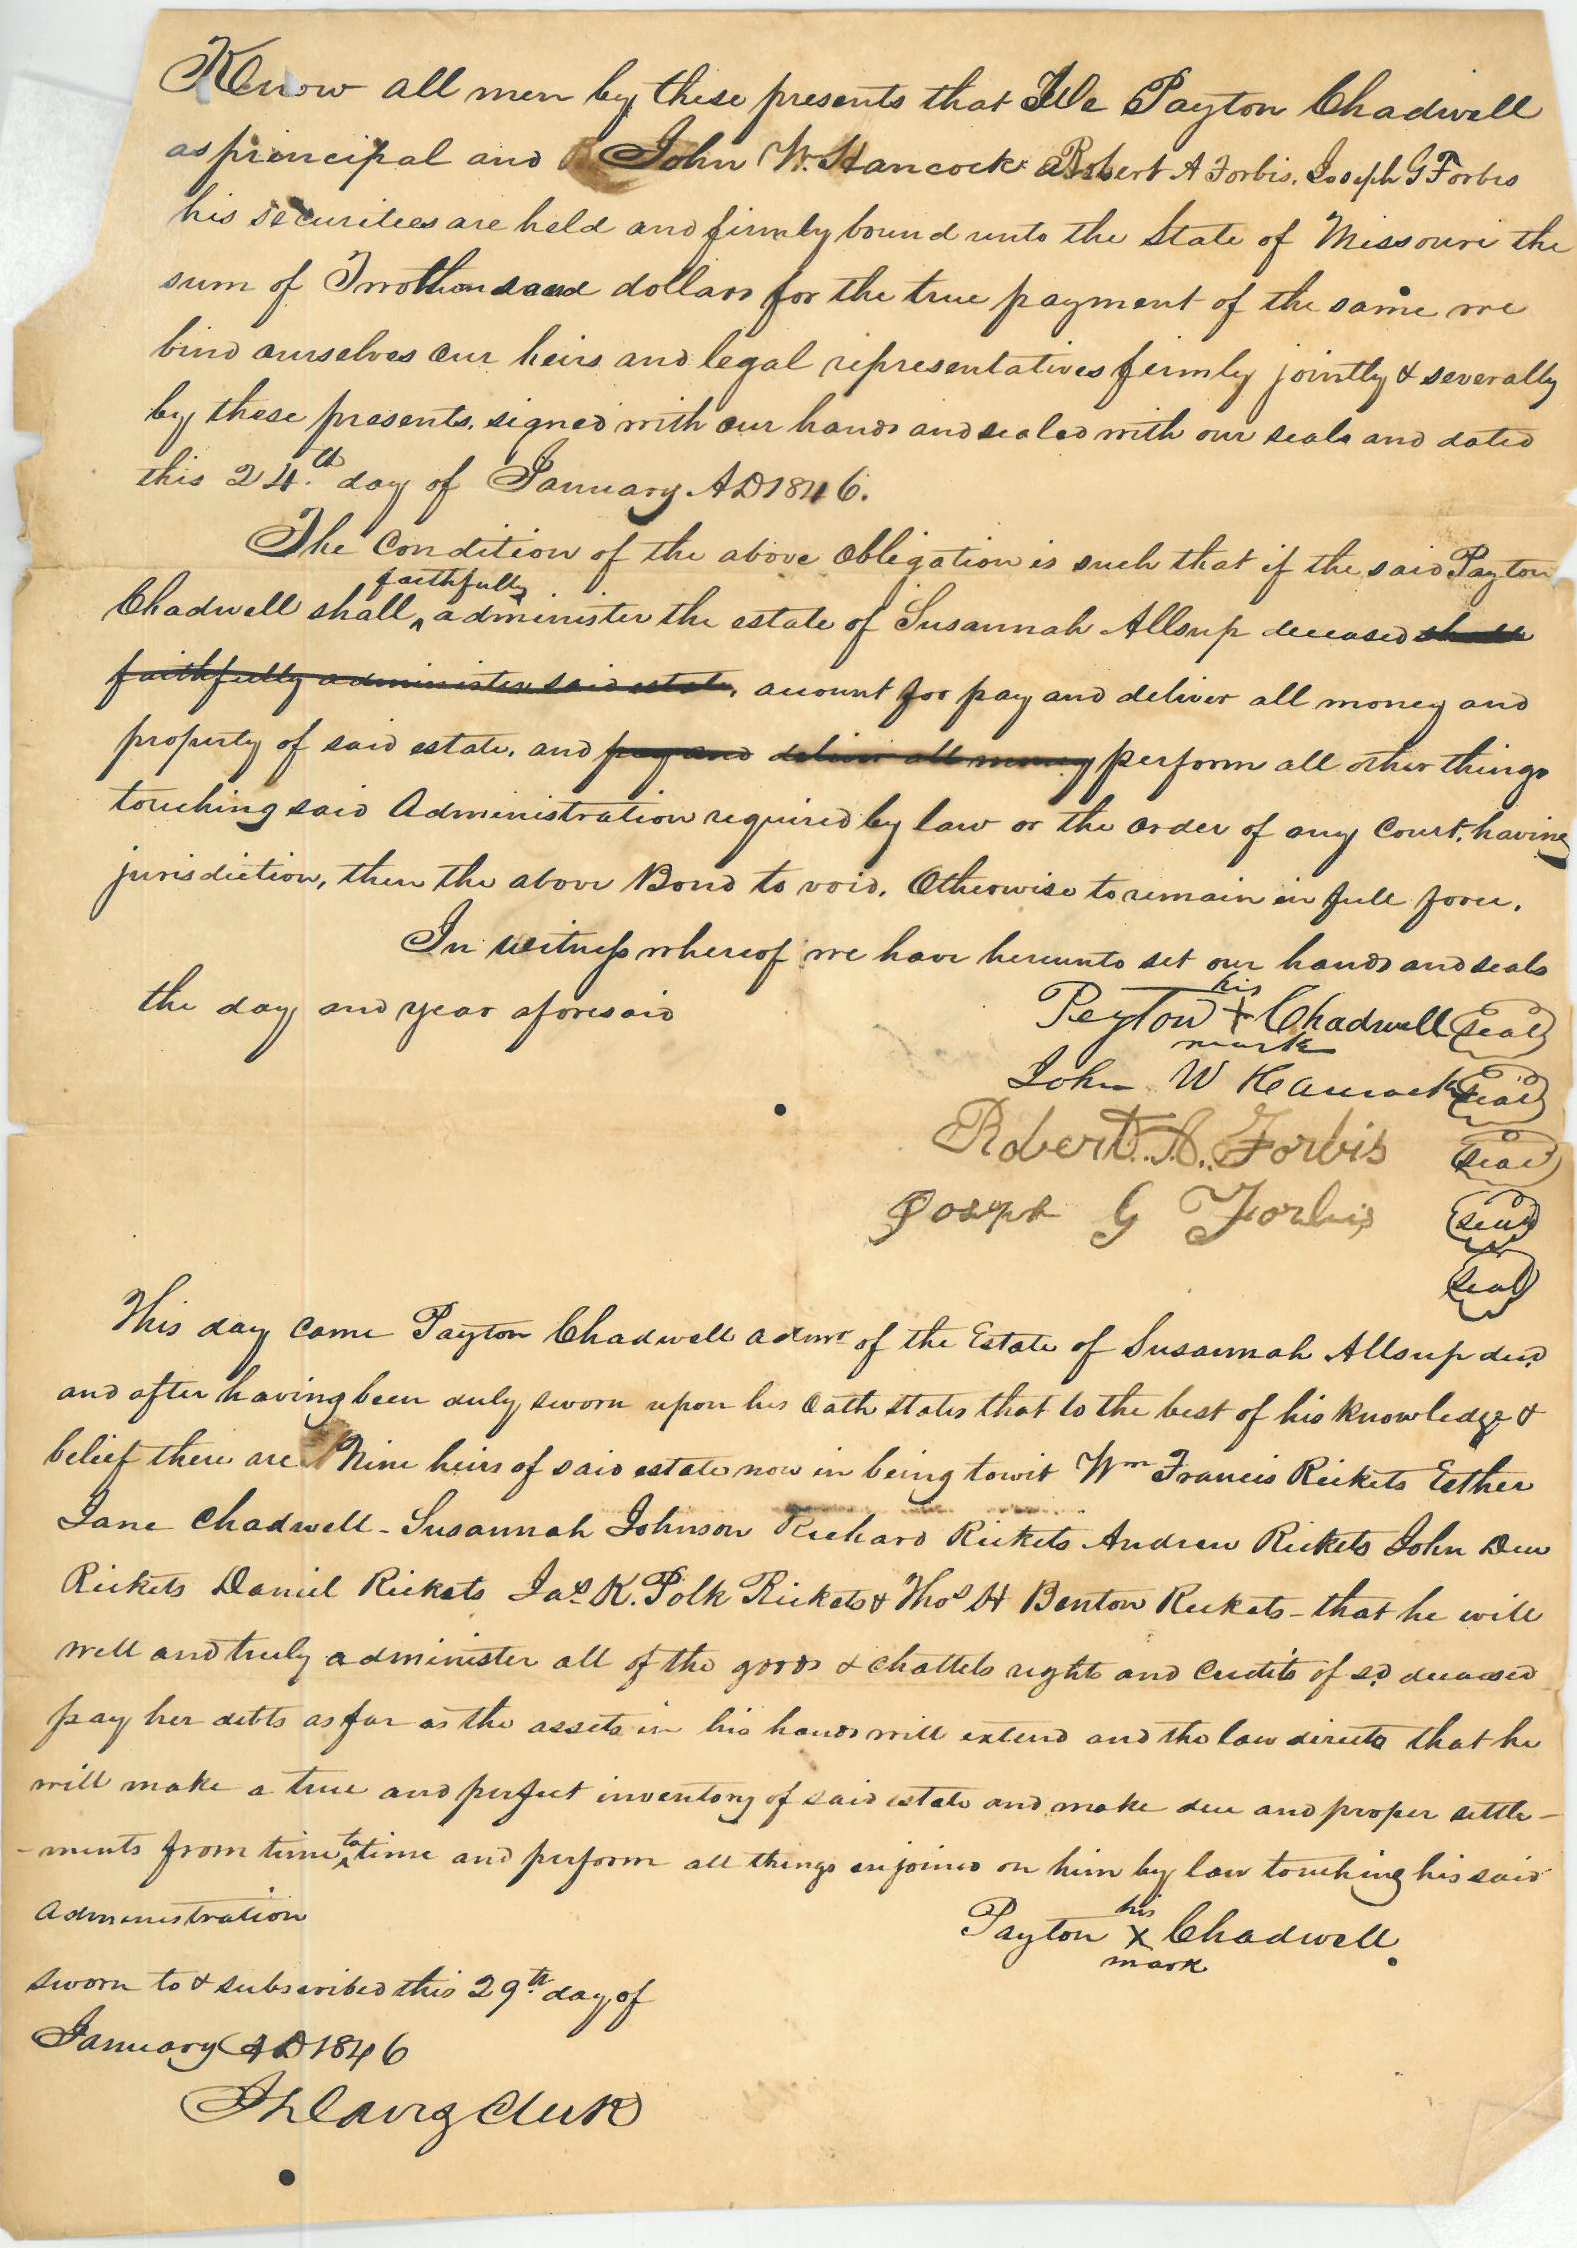 Know all men by these presents that We Payton Chadwell
as principal and John W. Hancock Robert A Forbis. Joseph G Forbis
his securitees are held and firmly bound unto the State of Missouri the
sum of Two thousand dollars for the true payment of the same we
bind ourselves our heirs and legal representatives firmly jointly & severally
by these presents, signed with our hands and sealed with our seals and dated
this 24.th day of January AD 1846.
The Condition of the above Obligation is such that if the said Payton
faithfully
Chadwell shall ^ administer the estate of Susannah Allsup deceased shall
faithfully administer said estate, account for pay and deliver all money and
property of said estate. and pay and deliver all money perform all other things
touching said Administration required by law or the order of any Court. having
jurisdiction, then the above Bond to void. Otherwise to remain in full force.
In witness whereof we have hereunto set our hands and seals
the day and year aforesaid
his
Peyton + Chadwell seal
mark
John W Hancock seal
Robert. A. Forbis seal
Joseph G Forbis seal
seal
This day came Payton Chadwell admr of the Estate of Susannah Allsup decd
and after having been duly sworn upon his Oath states that to the best of his knowledge &
belief there are Nine heirs of said estate now in being towit Wm Francis Rickets Esther
Jane Chadwell - Susannah Johnson Richard Rickets Andrew Rickets John Dew
Rickets Daniel Rickets Jas K. Polk Rickets & Thos H Benton Rickets - that he will
well and truly administer all of the goods & chattels rights and credits of sd deceased
pay her debts as far as the assets in his hands will extend and the law directs that he
will make a true and perfect inventory of said estate and make due and proper settle-
-ments from time ^to time and perform all things enjoined on him by law touching his said
Administration
his
Payton X Chadwell.
mark
Sworn to & subscribed this 29th day of
January AD 1846
Clerk